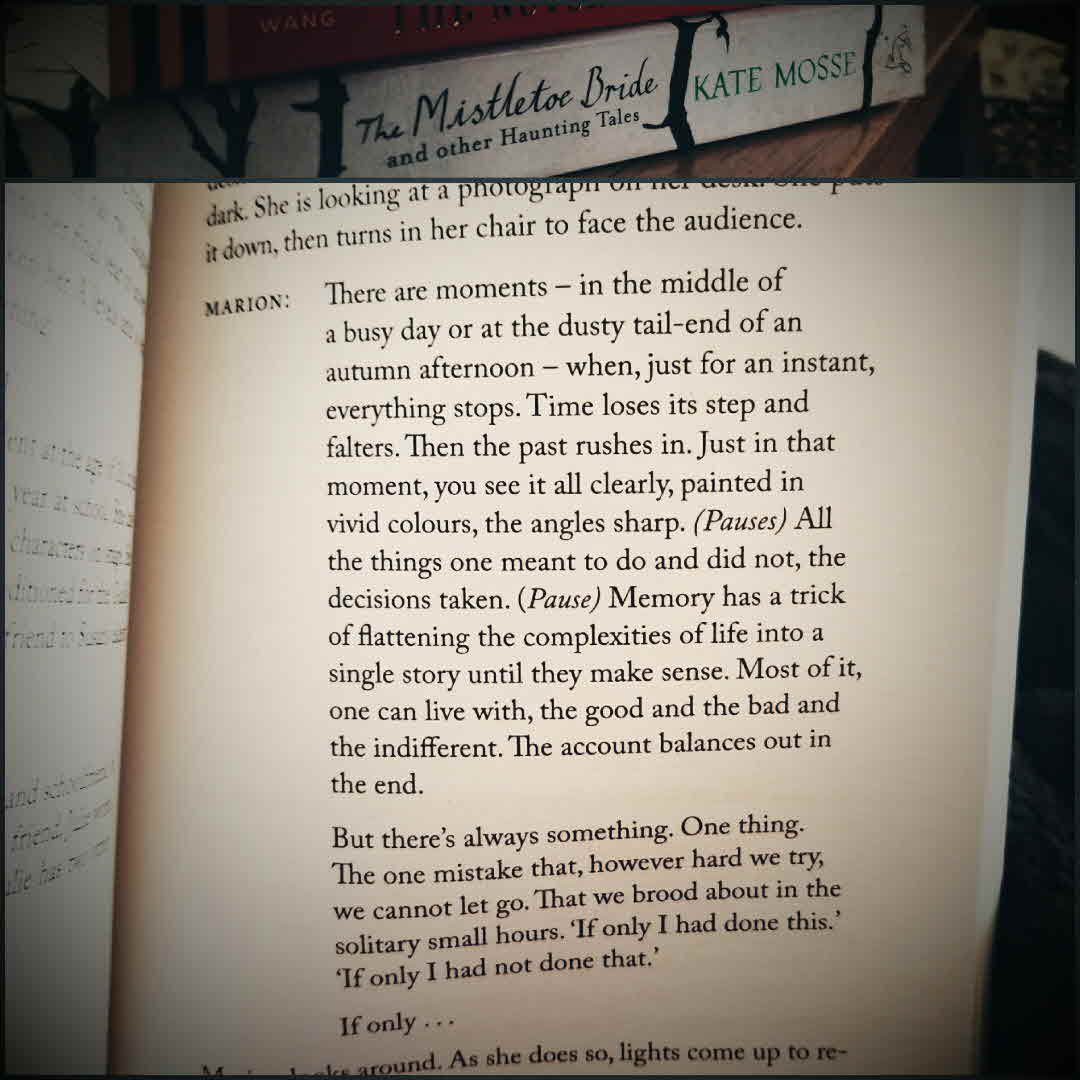 WANG
The Mistletoe Bride
and other Haunting Tales
KATE MOSSE
dark. She is looking at a photograph on her desk. She puts
it down, then turns in her chair to face the audience.
MARION: There are moments – in the middle of
a busy day or at the dusty tail-end of an
autumn afternoon – when, just for an instant,
everything stops. Time loses its step and
falters. Then the past rushes in. Just in that
moment, you see it all clearly, painted in
vivid colours, the angles sharp. (Pauses) All
the things one meant to do and did not, the
decisions taken. (Pause) Memory has a trick
of flattening the complexities of life into a
single story until they make sense. Most of it,
one can live with, the good and the bad and
the indifferent. The account balances out in
the end.
But there's always something. One thing.
The one mistake that, however hard we try,
we cannot let go. That we brood about in the
solitary small hours. ‘If only I had done this.’
‘If only I had not done that.’
If only . . .
around. As she does so, lights come up to re-